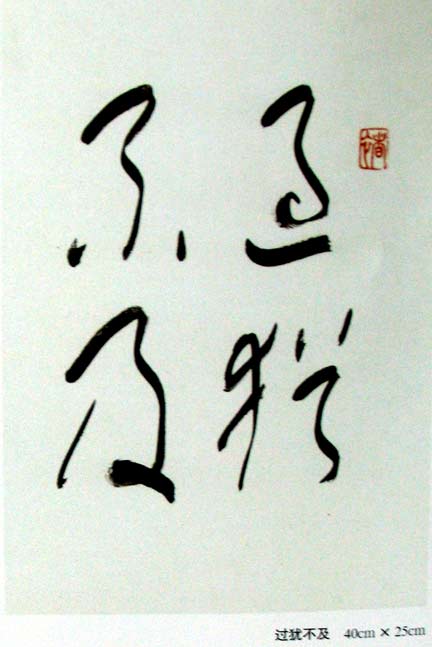 过犹
不及
过犹不及 40cm × 25cm